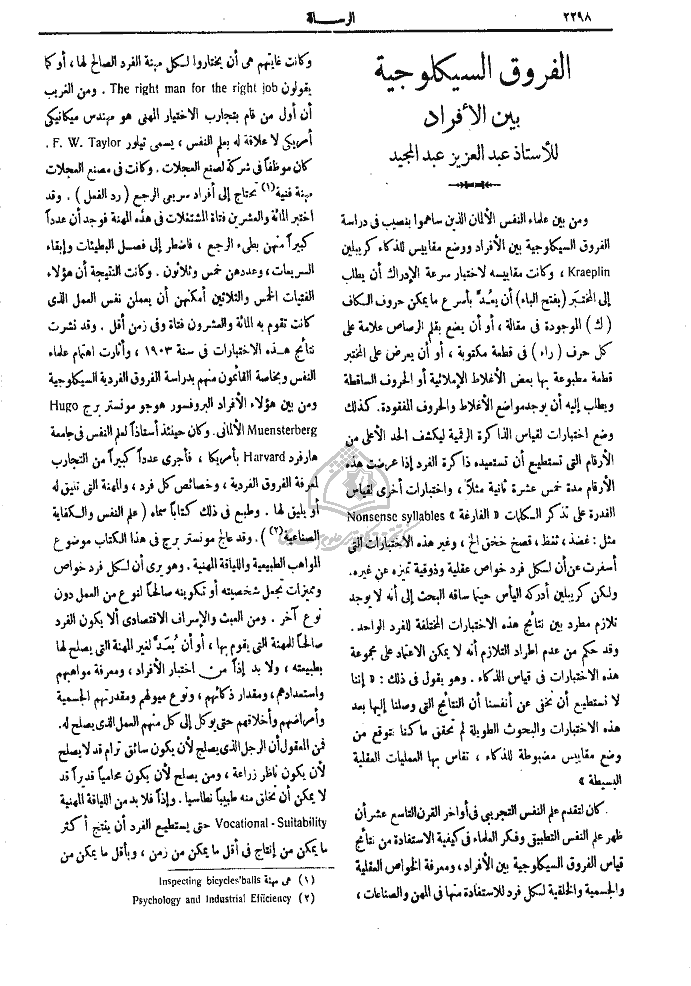 ٢٢٩٨
الرسالة
الفروق السيكلوجية
بين الأفراد
للأستاذ عبد العزيز عبد المجيد
ومن بين علماء النفس الألمان الذين ساهموا بنصيب في دراسة
الفروق السيكلوجية بين الأفراد ووضع مقاييس للذكاء كريبلين
Kraeplin ، وكانت مقاييسه لاختبار سرعة الإدراك أن يطلب
إلى المختبَر (بفتح الباء) أن يعُدّ بأسرع ما يمكن حروف الكاف
(ك) الموجودة في مقالة ، أو أن يضع بقلم الرصاص علامة على
كل حرف (راء) في قطعة مكتوبة ، أو أن يعرض على المختبر
قطعة مطبوعة بها بعض الأغلاط الإملائية أو الحروف الساقطة
ويطلب إليه أن يوجد مواضع الأغلاط والحروف المفقودة. كذلك
وضع اختبارات لقياس الذاكرة الرقمية ليكشف الحد الأعلى من
الأرقام التي تستطيع أن تستعيده ذاكرة الفرد إذا عرضت هذه
الأرقام مدة خمس عشرة ثانية مثلاً، واختبارات أخرى لقياس
القدرة على تذكر الكلمات « الفارغة » Nonsense syllables
مثل : غضذ ، ثفظ ، قصخ خفق الخ ، وغير هذه الاختبارات التي
أسفرت عن أن لكل فرد خواص عقلية وذوقية تميزه عن غيره.
ولكن كريبلين أدركه اليأس حينما ساقه البحث إلى أنه لا يوجد
تلازم مطرد بين نتائج هذه الاختبارات المختلفة للفرد الواحد .
وقد حكم من عدم اطراد التلازم أنه لا يمكن الاعتماد على مجموعة
هذه الاختبارات في قياس الذكاء . وهو يقول في ذلك : « إننا
لا نستطيع أن نخفي عن أنفسنا أن النتائج التي وصلنا إليها بعد
هذه الاختبارات والبحوث الطويلة لم تحقق ما كنا نتوقع من
وضع مقاييس مضبوطة للذكاء ، تقاس بها العمليات العقلية
البسيطة »
كان لتقدم علم النفس التجريبي في أواخر القرن التاسع عشر أن
ظهر علم النفس التطبيقي وفكر العلماء في كيفية الاستفادة من نتائج
قياس الفروق السيكلوجية بين الأفراد ، ومعرفة الخواص العقلية
والجسمية والخلقية لكل فرد للاستفادة منها في المهن والصناعات ،
وكانت غايتهم هي أن يختاروا لكل مهنة الفرد الصالح لها ، أو كما
يقولون The right man for the right job . ومن الغريب
أن أول من قام بتجارب الاختيار المهني هو مهندس ميكانيكي
أمريكي لا علاقة له بعلم النفس ، يسمى تيلور F. W. Taylor .
كان موظفاً في شركة لصنع العجلات . وكانت في مصنع العجلات
مهنة فنية(١) تحتاج إلى أفراد سريعي الرجع (رد الفعل) . وقد
اختبر المائة والعشرين فتاة المشتغلات في هذه المهنة فوجد أن عدداً
كبيراً منهن بطىء الرجع ، فاضطر إلى فصل البطيئات وإبقاء
السريعات ، وعددهن خمس وثلاثون . وكانت النتيجة أن هؤلاء
الفتيات الخمس والثلاثين أمكنهن أن يعملن نفس العمل الذي
كانت تقوم به المائة والعشرون فتاة وفي زمن أقل . وقد نشرت
نتائج هذه الاختبارات في سنة ١٩٠٣ ، وأثارت اهتمام علماء
النفس وبخاصة القائمون منهم بدراسة الفروق الفردية السيكلوجية
ومن بين هؤلاء الأفراد البروفسور هوجو مونستر برج Hugo
Muensterberg الألماني. وكان حينئذ أستاذاً لعلم النفس في جامعة
هارفرد Harvard بأمريكا ، فأجرى عدداً كبيراً من التجارب
لمعرفة الفروق الفردية ، وخصائص كل فرد ، والمهنة التي تليق له
أو يليق لها . وطبع في ذلك كتاباً سماه (علم النفس والكفاية
الصناعية(٢)) . وقد عالج مونستر برج في هذا الكتاب موضوع
المواهب الطبيعية واللياقة المهنية . وهو يرى أن لكل فرد خواص
ومميزات تجعل شخصيته أو تكوينه صالحاً لنوع من العمل دون
نوع آخر . ومن العبث والإسراف الاقتصادي ألا يكون الفرد
صالحاً للمهنة التي يقوم بها ، أو أن يُعدّ لغير المهنة التي يصلح لها
بطبيعته ، ولا بد إذاً من اختبار الأفراد ، ومعرفة مواهبهم
واستعدادهم ، ومقدار ذكائهم ، ونوع ميولهم ومقدرتهم الجسمية
وأمراضهم وأخلاقهم حتى يوكل إلى كل منهم العمل الذي يصلح له.
فمن المعقول أن الرجل الذي يصلح لأن يكون سائق ترام قد لا يصلح
لأن يكون ناظر زراعة ، ومن يصلح لأن يكون محامياً قديراً قد
لا يمكن أن تخلق منه طبيباً نطاسيا . وإذاً فلا بد من اللياقة المهنية
Vocational - Suitability حتى يستطيع الفرد أن ينتج أكثر
ما يمكن من إنتاج في أقل ما يمكن من زمن ، وبأقل ما يمكن من
(١) هي مهنة Inspecting bicycles'balls
(٢) Psychology and Industrial Efficiency